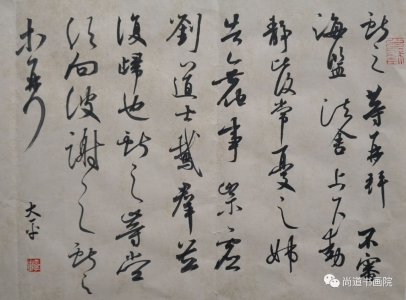 献之等再拜 不審
海鹽 諸舍上下動
靜比復常憂之姊
告無他事崇虛
劉道士鵝群並
復歸也献之等當
須向彼謝之献之
大平
尚道书画院